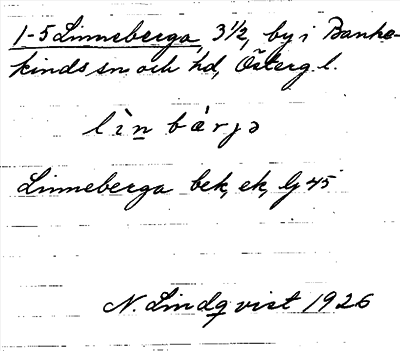 1-5 Linneberga, 3½, by i Banke-
kinds sn och hd, Österg. l.
lìn bærjə
Linneberga bek, ek, lj 45
N. Lindqvist 1926